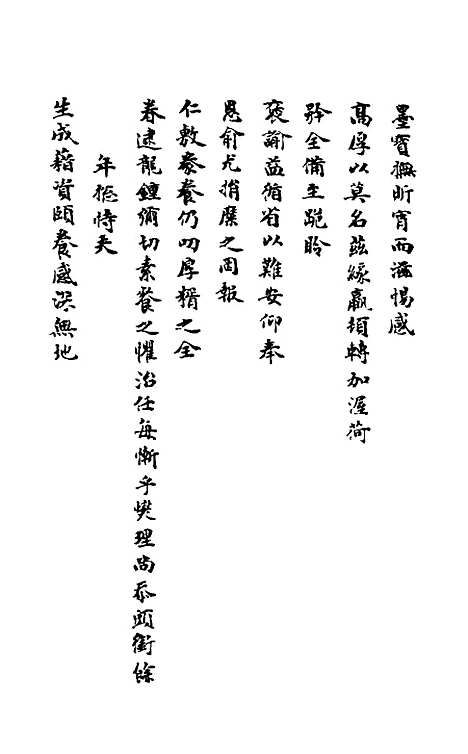 墨寶撫昕宵而滋惕感
高厚以莫名茲緣羸頓轉加渥荷
矜全備至跪聆
褒諭益循省以難安仰奉
恩俞尤捐糜之罔報
仁敷豢養仍叨厚糈之全
眷逮龍鍾彌切素餐之懼治任每慚乎燮理尚忝頭銜餘
年捴恃夫
生成藉資頤養感深無地